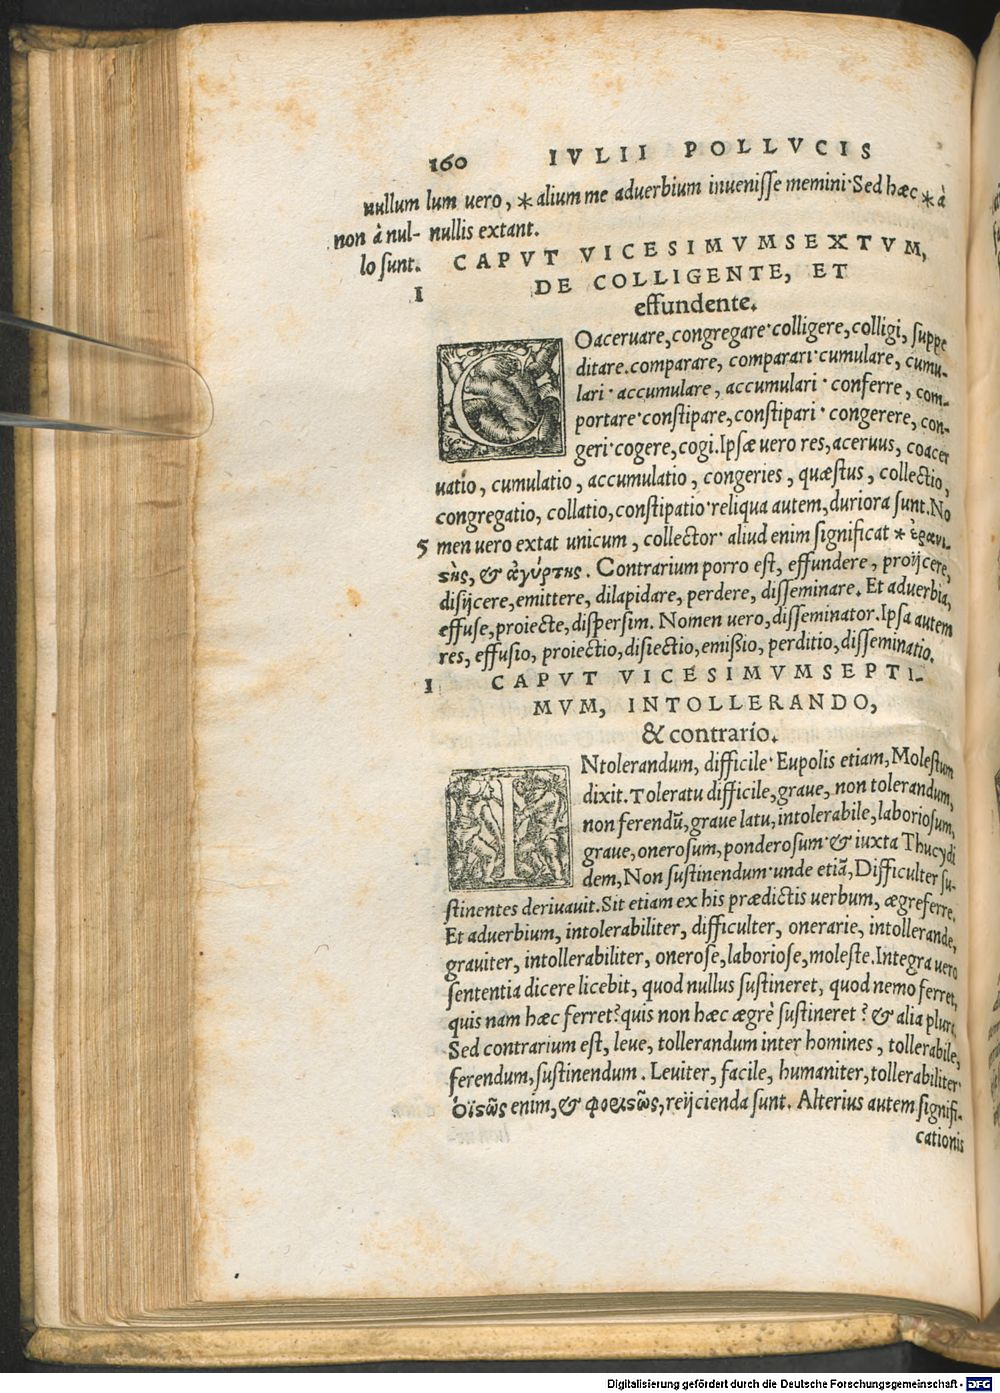 160 IVLII POLLVCIS
nullum lum uero, * alium me aduerbium inuenisse memini· Sed hæc * à
non à nul- nullis extant.
lo sunt. CAPVT VICESIMVMSEXTVM,
1 DE COLLIGENTE, ET
effundente.
COaceruare, congregare· colligere, colligi, suppe
ditare. comparare, comparari· cumulare, cumu-
lari· accumulare, accumulari· conferre, com-
portare· constipare, constipari· congerere, con-
geri· cogere, cogi. Ipsæ uero res, aceruus, coacer
uatio, cumulatio, accumulatio, congeries, quæstus, collectio,
congregatio, collatio, constipatio· reliqua autem, duriora sunt. No
5 men uero extat unicum, collector· aliud enim significat * ἐρανι-
στὴς, & ἀγύρτης. Contrarium porro est, effundere, proijcere,
disijcere, emittere, dilapidare, perdere, disseminare. Et aduerbia,
effuse, proiecte, dispersim. Nomen uero, disseminator. Ipsa autem
res, effusio, proiectio, disiectio, emissio, perditio, disseminatio.
1 CAPVT VICESIMVMSEPTI-
MVM, INTOLLERANDO,
& contrario.
INtolerandum, difficile· Eupolis etiam, Molestum
dixit. Toleratu difficile, graue, non tolerandum,
non ferendũ, graue latu, intolerabile, laboriosum,
graue, onerosum, ponderosum· & iuxta Thucydi
dem, Non sustinendum· unde etiã, Difficulter su-
stinentes deriuauit. Sit etiam ex his prædictis uerbum, ægreferre.
Et aduerbium, intolerabiliter, difficulter, onerarie, intollerande,
grauiter, intollerabiliter, onerose, laboriose, moleste. Integra uero
sententia dicere licebit, quod nullus sustineret, quod nemo ferret,
quis nam hæc ferret? quis non hæc ægrè sustineret? & alia plura.
Sed contrarium est, leue, tollerandum inter homines, tollerabile,
ferendum, sustinendum. Leuiter, facile, humaniter, tollerabiliter·
ὀϊστῶς enim, & φορητῶς, reijcienda sunt. Alterius autem signifi-
cationis
Digitalisierung gefördert durch die Deutsche Forschungsgemeinschaft - DFG